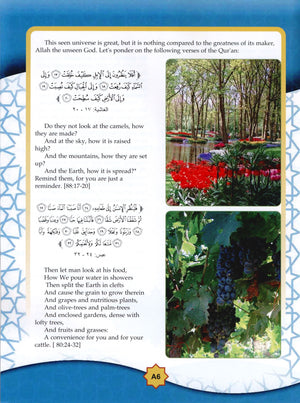 This seen universe is great, but it is nothing compared to the greatness of its maker,
Allah the unseen God. Let's ponder on the following verses of the Qur'an:
﴿ أَفَلَا يَنظُرُونَ إِلَى الْإِبِلِ كَيْفَ خُلِقَتْ ﴿١٧﴾ وَإِلَى
السَّمَاءِ كَيْفَ رُفِعَتْ ﴿١٨﴾ وَإِلَى الْجِبَالِ كَيْفَ نُصِبَتْ ﴿١٩﴾
وَإِلَى الْأَرْضِ كَيْفَ سُطِحَتْ ﴿٢٠﴾ ﴾
الغاشية: ١٧ - ٢٠
Do they not look at the camels, how
they are made?
And at the sky, how it is raised
high?
And the mountains, how they are set
up?
And the Earth, how it is spread?"
Remind them, for you are just a
reminder. [88:17-20]
﴿ فَلْيَنظُرِ الْإِنسَانُ إِلَى طَعَامِهِ ﴿٢٤﴾ أَنَّا صَبَبْنَا الْمَاءَ صَبًّا ﴿٢٥﴾
ثُمَّ شَقَقْنَا الْأَرْضَ شَقًّا ﴿٢٦﴾ فَأَنبَتْنَا فِيهَا حَبًّا ﴿٢٧﴾ وَعِنَبًا وَقَضْبًا
﴿٢٨﴾ وَزَيْتُونًا وَنَخْلًا ﴿٢٩﴾ وَحَدَائِقَ غُلْبًا ﴿٣٠﴾ وَفَاكِهَةً وَأَبًّا
﴿٣١﴾ مَتَاعًا لَكُمْ وَلِأَنْعَامِكُمْ ﴿٣٢﴾ ﴾
عبس: ٢٤ - ٣٢
Then let man look at his food,
How We pour water in showers
Then split the Earth in clefts
And cause the grain to grow therein
And grapes and nutritious plants,
And olive-trees and palm-trees
And enclosed gardens, dense with
lofty trees,
And fruits and grasses:
A convenience for you and for your
cattle. [ 80:24-32]
A6